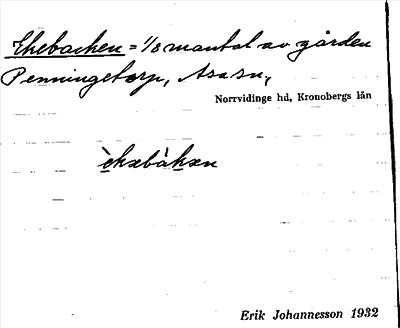 Ekebacken = 1/8 mantal av gården
Penningetorp, Asa sn,
Norrvidinge hd, Kronobergs län
èkəbàkən
Erik Johannesson 1932